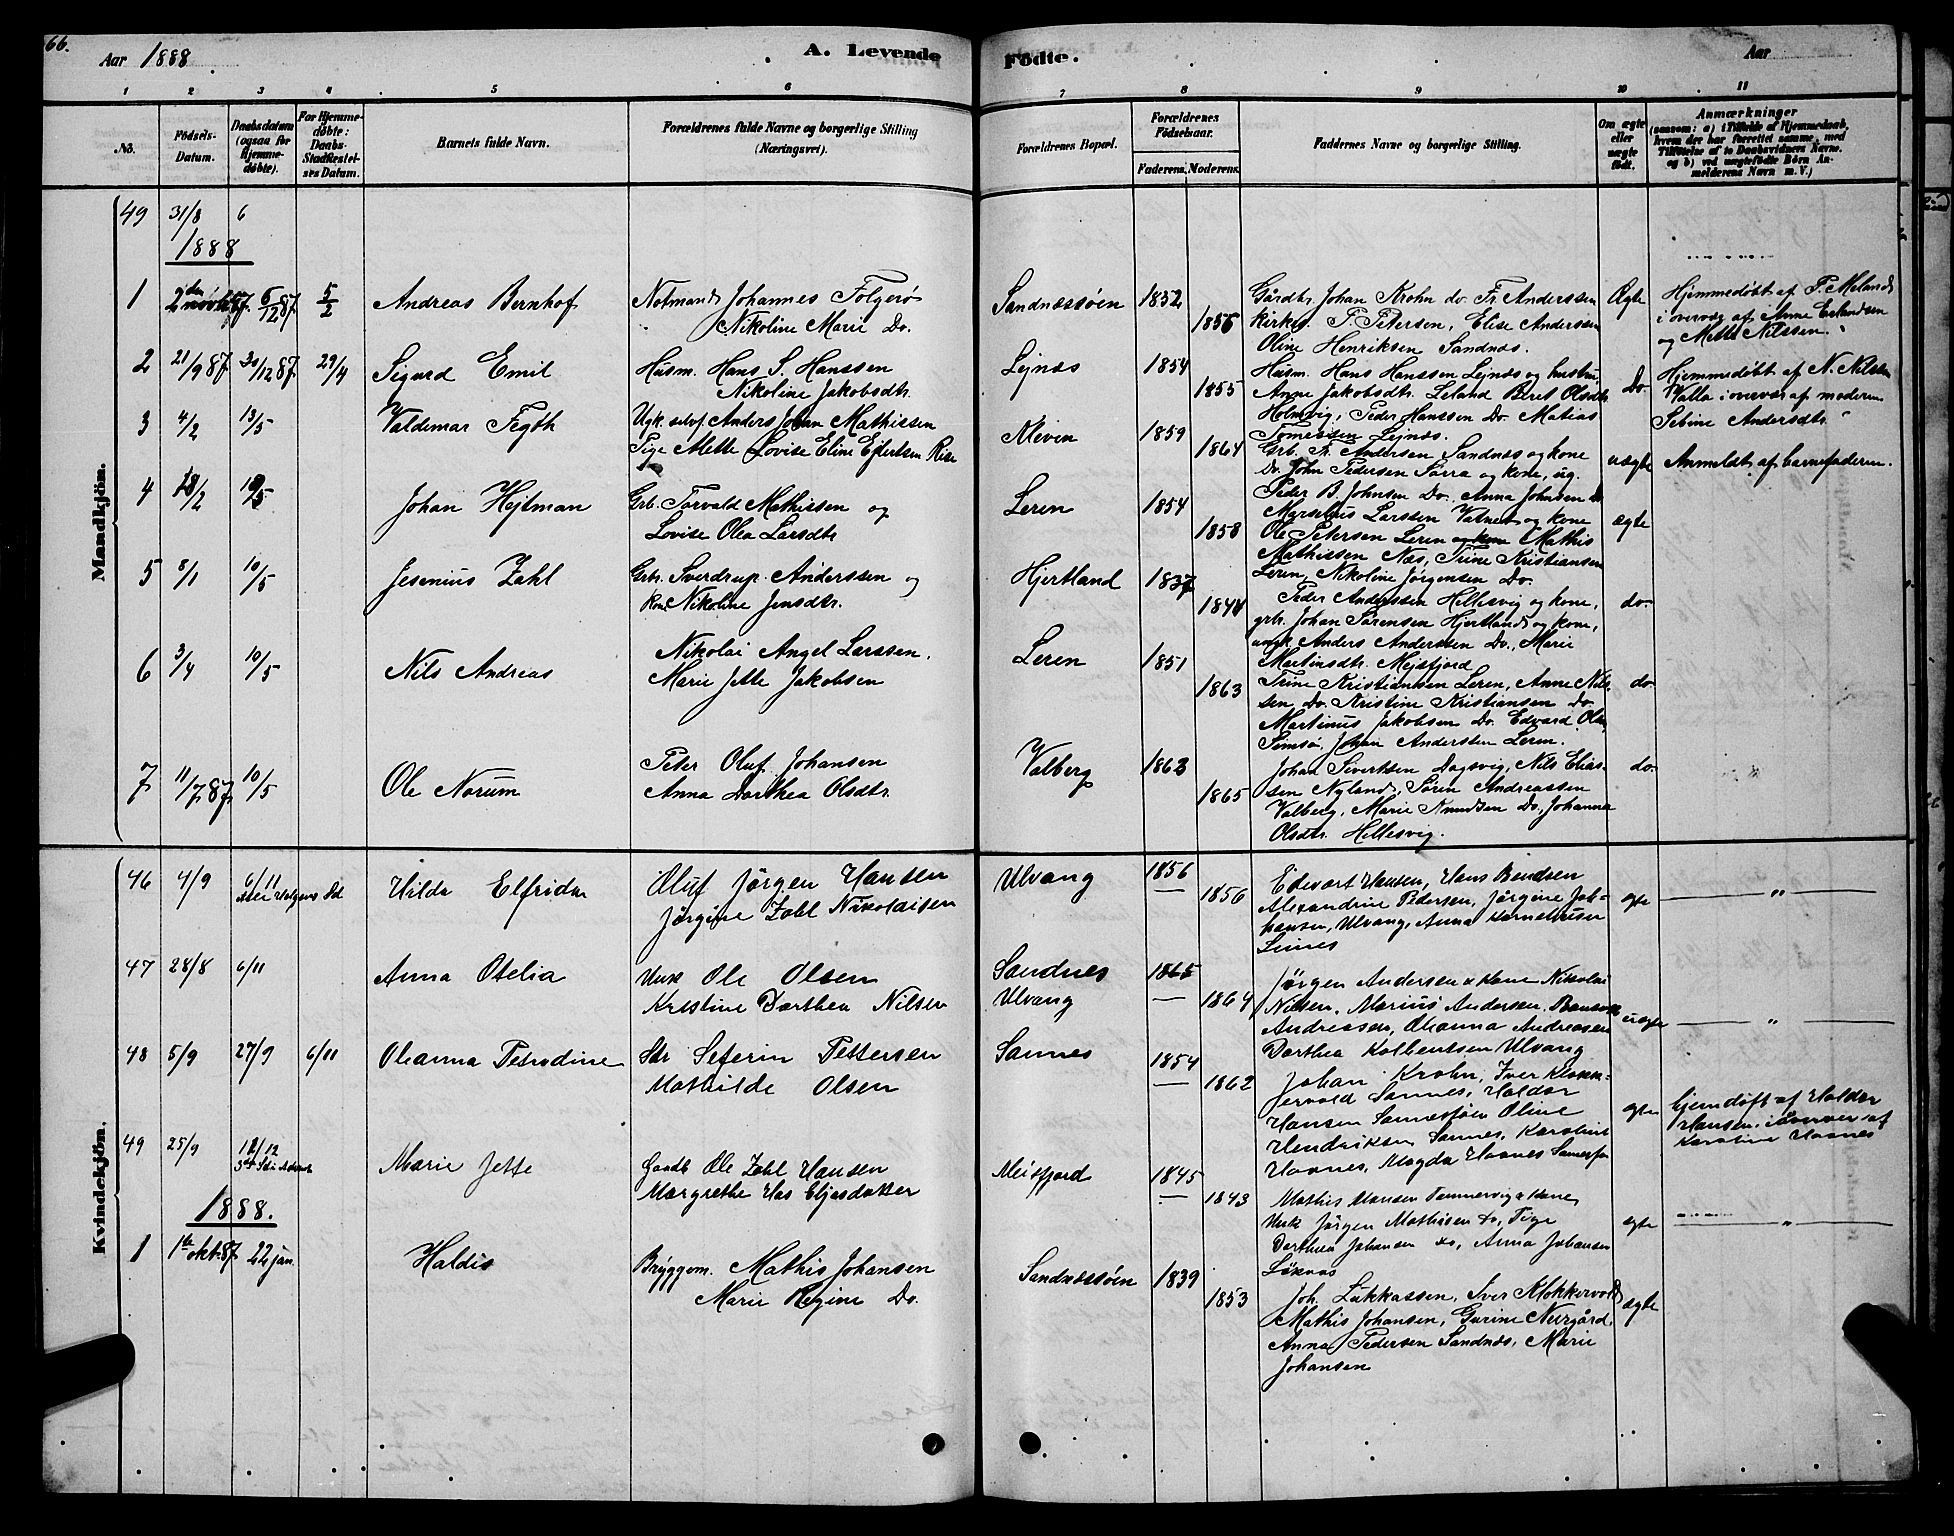 66.
Aar 1888
A. Levende
Födte.
Aar
1 2 3 4 5 6 7 8 9 10 11
No.
Födsels-
Datum.
Daabsdatum
(ogsaa for
Hjemme-
döbte).
For Hjemme-
döbte:
Daabs-
Stadfæstel-
ses Datum.
Barnets fulde Navn.
Forældrenes fulde Navne og borgerlige Stilling
(Næringsvei).
Forældrenes Bopæl.
Forældrenes
Födselsaar.
Faderens. Moderens.
Faddernes Navne og borgerlige Stilling.
Om ægte
eller
uægte
födt.
Anmærkninger
(saasom: a) i Tilfælde af Hjemmedaab,
hvem der har forrettet samme, med
Tilföielse af to Daabsvidners Navne,
og b) ved uægtefödte Börn An-
melderens Navn m. V.)
Mandkjön.
49 31/8 6
1888
1 2den novb. 87. 6/12 87. 5/2
Andreas Bernhof
Notmand Johannes Folgerø
Nikoline Marie Do.
Sandnessøen 1832
1856
Gårdbr. Johan Krohn do. Fr. Anderssen
Kirkes. P. Petersen, Elise Anderssen
Oline Henriksen Sandnæs.
Ægte
Hjemmedøbt af P. Meland
i overvær af Anne Erlandsen
og Mette Nilssen.
2 21/9 87 30/12 87. 29/4
Sigurd Emil
Husm. Hans S. Hanssen
Nikoline Jakobsdtr.
Lejnæs 1854
1855
Husm. Hans Hanssen Lejnæs og hustru
Anne Jakobsdtr. Leland Beret Olsdtr.
Holmvig, Peder Hanssen Do. Matias
Tomessen Lejnæs.
Do.
Hjemmedøbt af N. Nilsen
Valla i overvær af moderen
Sebine Andersdtr.
3 4/2 13/5
Valdemar Tegth
Ugk. selvf. Anders Johan Mathissen
Pige Mette Lovise Eline Ejlertsen Rise
Kleven 1859
1864
Grb. Fr. Andersen Sandnæs og kone
Do. John Pedersen Sørra og kone, ug.
Peder B. Johnsen Do. Anna Johnsen do
uægte
Anmeldt af barnefaderen.
4 18/2 10/5
Johan Hejtman
Grb. Torvald Mathissen og
Lovise Olea Larsdtr
Leren 1854
1858
Marselius Larssen Vatnet og kone
Ole Petersen Leren og kone Mathis
Mathissen Næs, Trine Kristiansen
Leren, Nikoline Jørgensen Do.
ægte
5 8/1 10/5
Jesenius Zahl
Grbr. Sverdrup Anderssen og
kone Nikoline Jensdtr.
Hjertland 1837
1844
Peder Anderssen Hellesvig og kone,
grb. Johan Sørensen Hjertland og kone,
ungk. Anders Anderssen Do., Marie
Martinsdtr. Mejsfjord
do.
6 3/4 10/5
Nils Andreas
Nikolai Angel Larssen,
Marie Jette Jakobsen
Leren 1851
1863
Trine Kristiansen Leren, Anne Nils-
sen, Do. Kristine Kristiansen Do
Martinus Jakobsen Do. Edvard Olsen
Simsø, Johan Anderssen Leren.
do
7 11/7 87. 10/5
Ole Norum
Peter Oluf Johansen
Anna Dorthea Olsdtr.
Valberg 1862
1865
Johan Sivertsen Dagsvig, Nils Elias-
sen Nyland, Søren Andreassen
Valberg, Marie Knudsen Do., Johanna
Olsdtr. Hellesvig.
do.
Kvindekjön.
46 4/9 6/11
Hilda Elfrida
Oluf Jørgen Hansen
Jørgine Zahl Nikolaisen
Ulvang 1856
1856
Edevart Hansen, Hans Bendsen
Alexandrine Pedersen, Jørgine Joh-
hansen, Ulvang, Anna Korneliusen
Sannes
egte
47 28/8 6/11
Anna Otelia
Unk Ole Olsen
Kristine Dorthea Nilsen
Sandnes 1865
Ulvang
1864
Jørgen Andersen & Kone Nikolai
Nilsen, Marius Andersen,
Andreasen, Ohanna Andreasen
Dorthea Kolbentsen Ulvang
uegte
48 5/9 27/9 6/11
Ohanna Petrodine
Sdr Seferin Pettersen
Mathilde Olsen
Sannes 1854
1862
Johan Krohn, Iver Klokk-
jervold Sannes, Haldor
Hansen Sannesføen Oline
Hendriksen Sannes, Karoline
Haanes, Magda Haanes Sannesfø
egte
hjemdøft af Haldor
Hansen, i overvær af
Karoline Haanes
49 25/9 11/12
3die Sdi Advent
Marie Jette
Gaadb Ole Zahl Hansen
Margrethe Has Eljasdatter
Meisfjord 1845
1843
Mathis Hansen Tømmervig & Kone,
Unk Jørgen Mathisen do, Pige
Dorthea Johansen do, Anna Johansen
Løknæs
egte
1888.
1 1te okt. 87. 22 jan.
Haldis
Bryggem. Mathis Johansen
Marie Regine Do.
Sandnæssøen 1839
1853
Joh. Lukkassen, Iver Klokkervold
Mathis Johansen, Gurine Neergård,
Anna Pedersen Sandnæs, Marie
Johansen
ægte